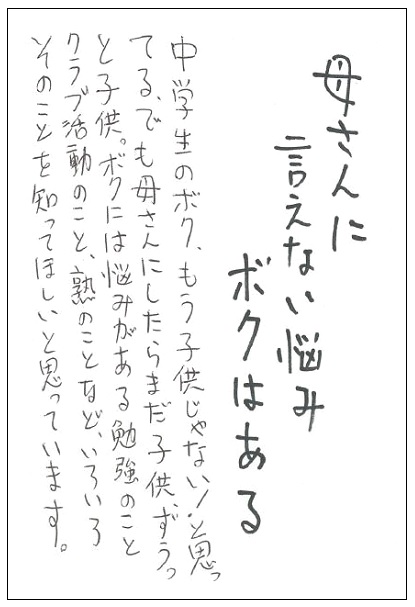 母さんに
言えない悩み
ボクはある
中学生のボク、もう子供じゃない！と思っ
てる、でも母さんにしたらまだ子供、ずうっ
と子供。ボクには悩みがある勉強のこと
クラブ活動のこと、熟のことなど、いろいろ
そのことを知ってほしいと思っています。